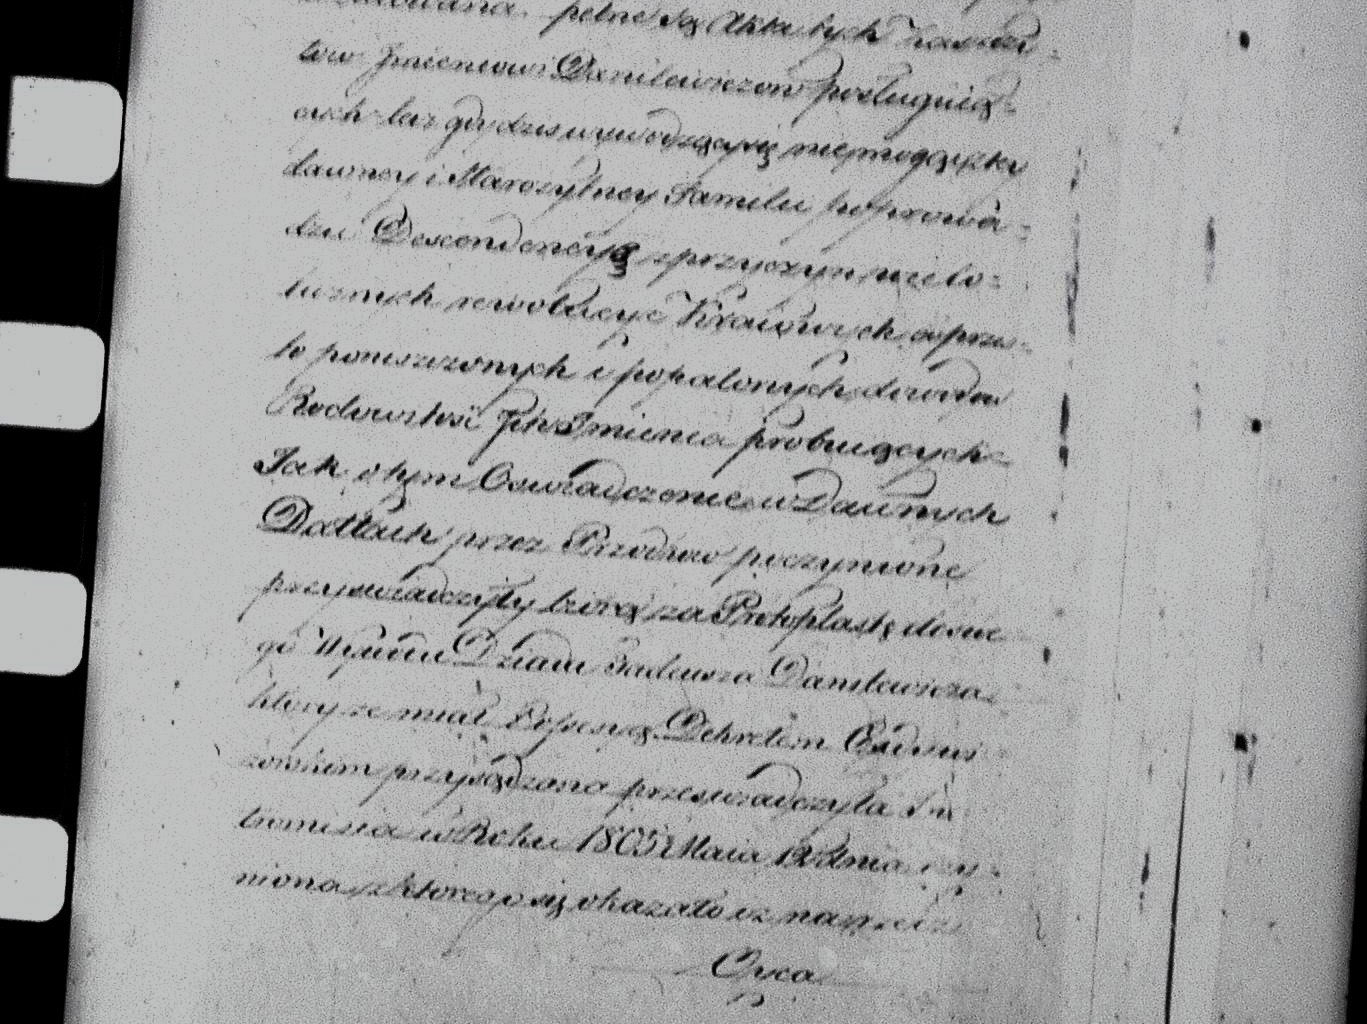 pełne są Akta tych Zaszczy-
tow Jmieniowi Danilewiczow posługuią-
cych lecz gdy dziś wywodzący się nie mogą iak by
dawney i Starożytney Familii poprowa-
dzić Descendencyą z przyczyn nie lo-
tucznych rewolucyi Kraiowych a przez
to poniszczonych i popalonych dowodow
Rodowitość Jch Jmienia probuiących
Jak o tym Oswiadczenie w Dawnych
Dattach przez Przodkow poczynione
przyswiadczyły biorą za Protoplastę dowe
go Wywodu Dziada Tadeusza Danilewicza
ktory ze miał Possesyą Dekretem Exdywi
zorskim przysądzoną przeswiadczyła In
tromissia w Roku 1805 Maia 12 dnia czy-
niona z ktorego się okazało iz naprzód
Oyca